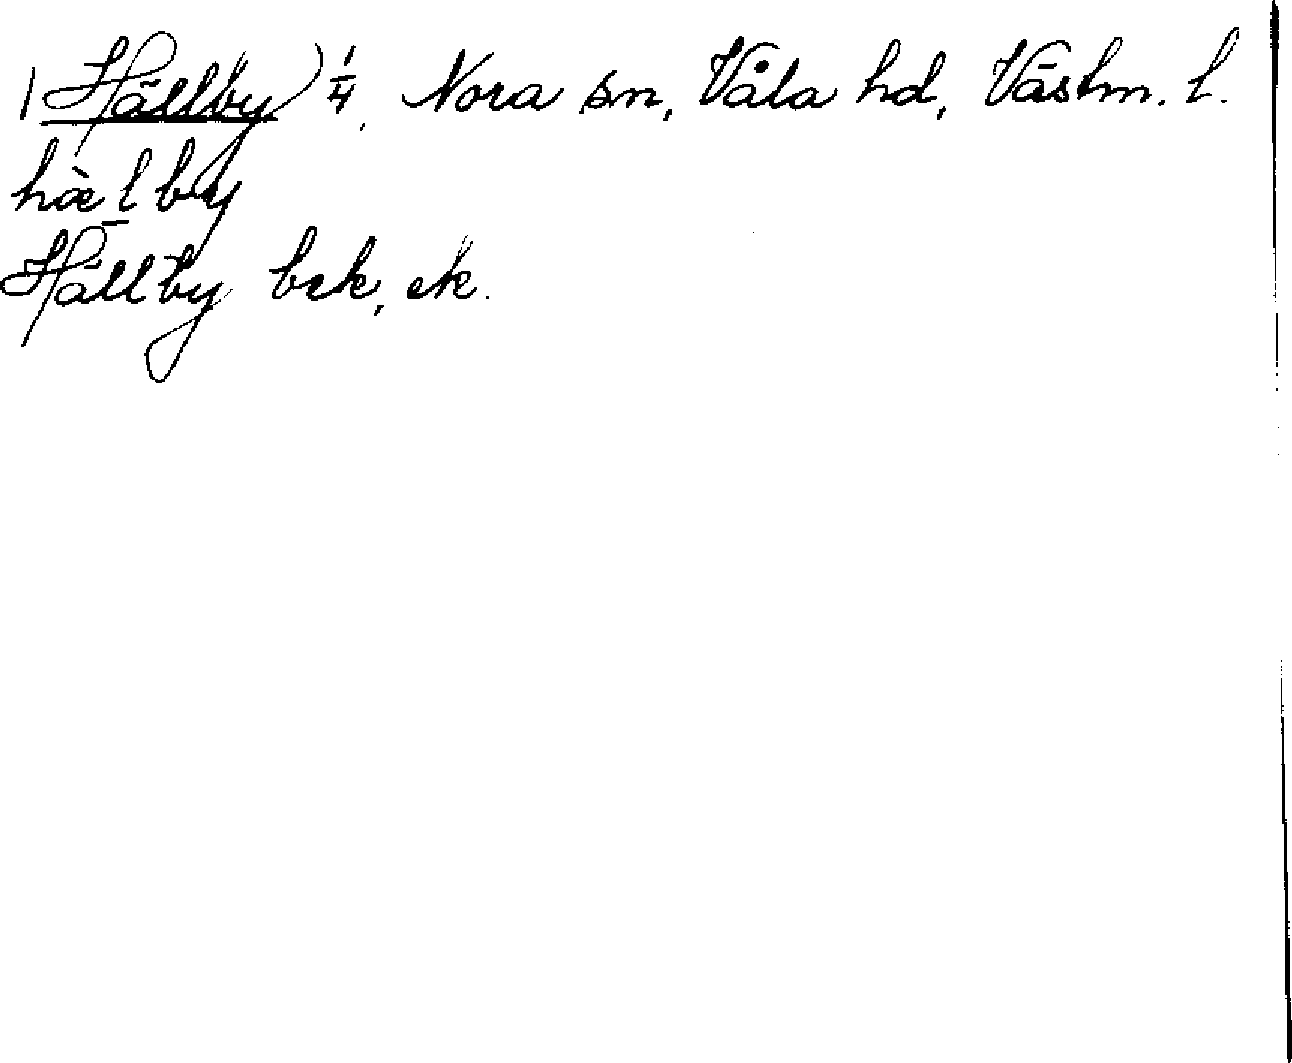 (Hällby) 1/4, Nora sn, Våla hd, Västm. l.
hæ̀l̠by
Hällby bek, ek.